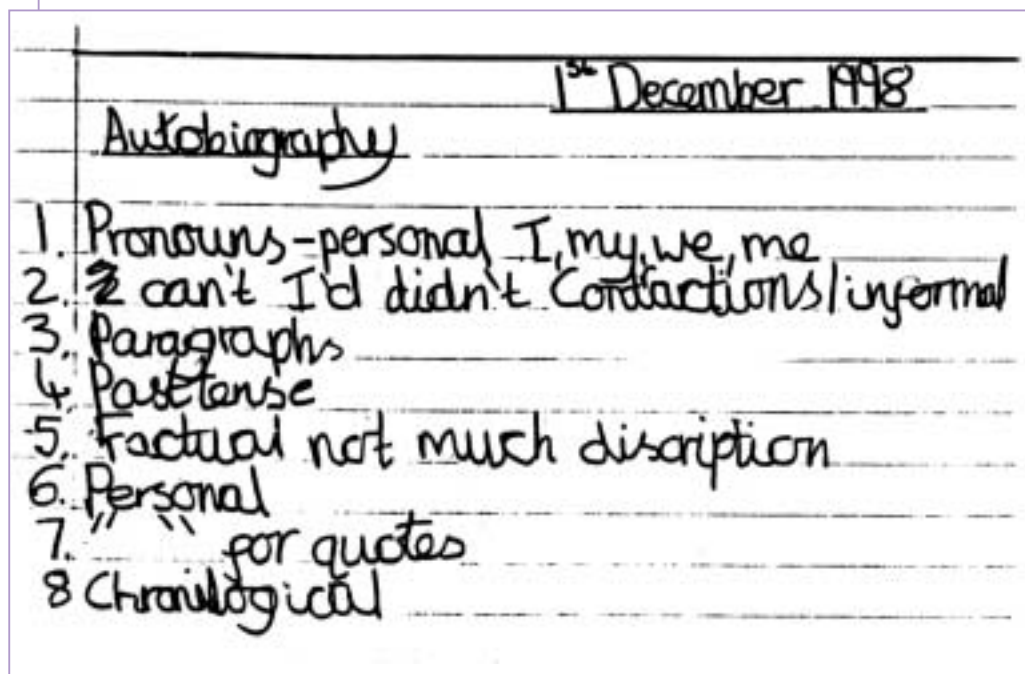 1st December 1998
Autobiography
1. Pronouns - personal I, my, we, me
2. can't I'd didn't Contactions/informal
3. Paragraphs
4. Past tense
5. Factual not much discription
6. Personal
7. " " for quotes
8 Chronilogical